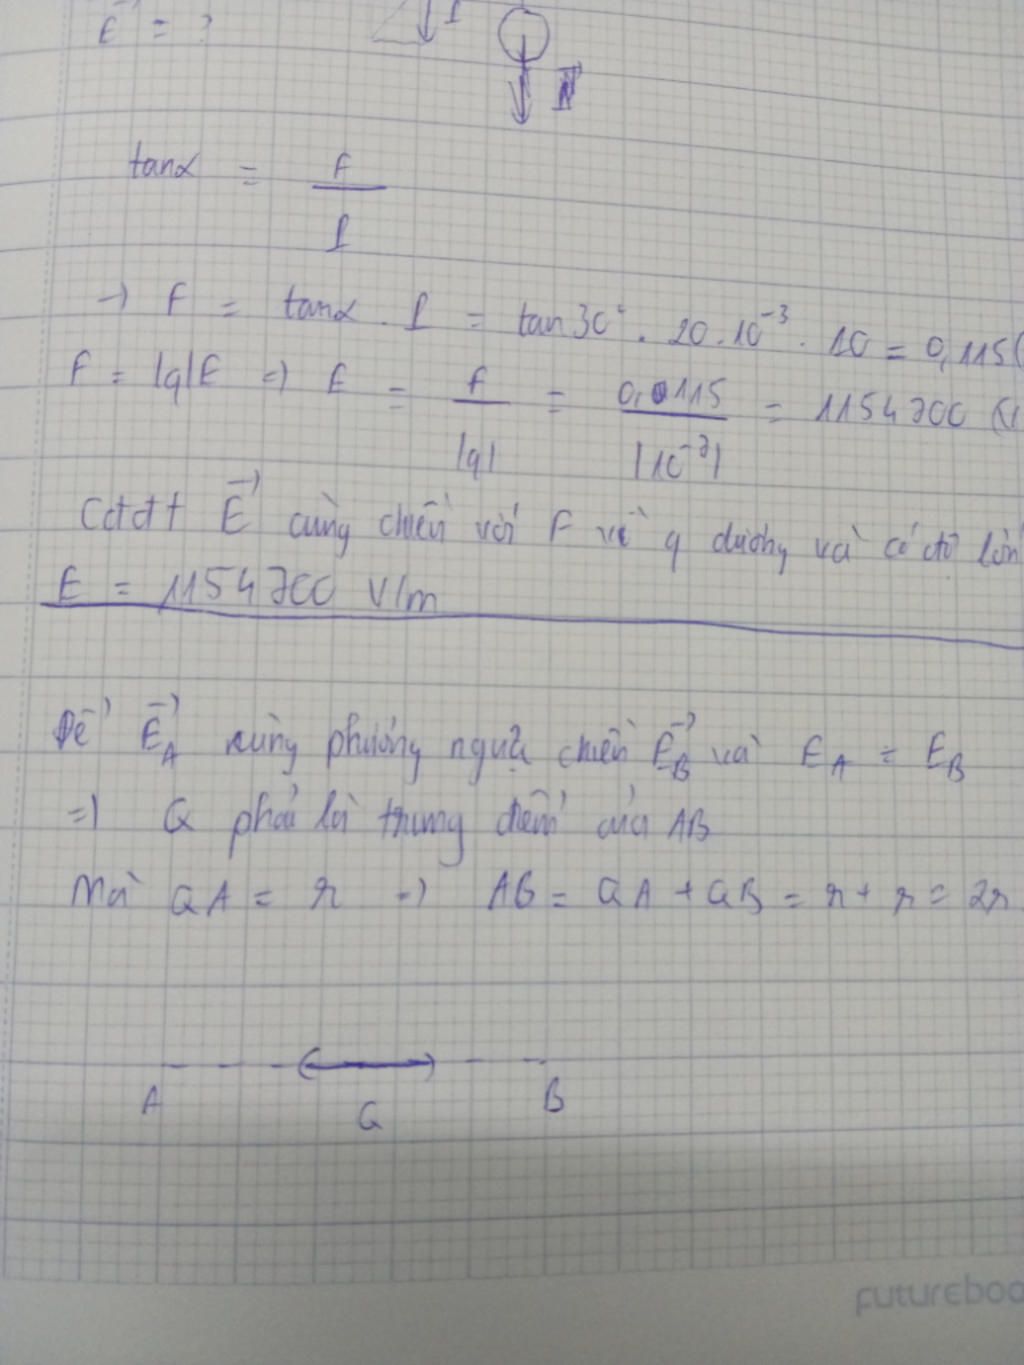 E = ?
P
N
tanα = F / P
→ F = tanα . P = tan 30° . 20 . 10⁻³ . 10 = 0,115(
F = |q|E ⇒ E = F / |q| = 0,0115 / |10⁻⁷| = 1154700 (V
Cđđt E⃗ cùng chiều với F vì q dương và có độ lớn
E = 1154700 V/m
Để E⃗_A cùng phương ngược chiều E⃗_B và E_A = E_B
⇒ Q phải là trung điểm của AB
Mà QA = r ⇒ AB = QA + QB = r + r = 2r
A Q B
futureboo